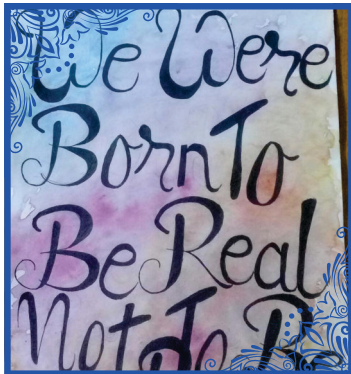 We Were
Born To
Be Real
Not To